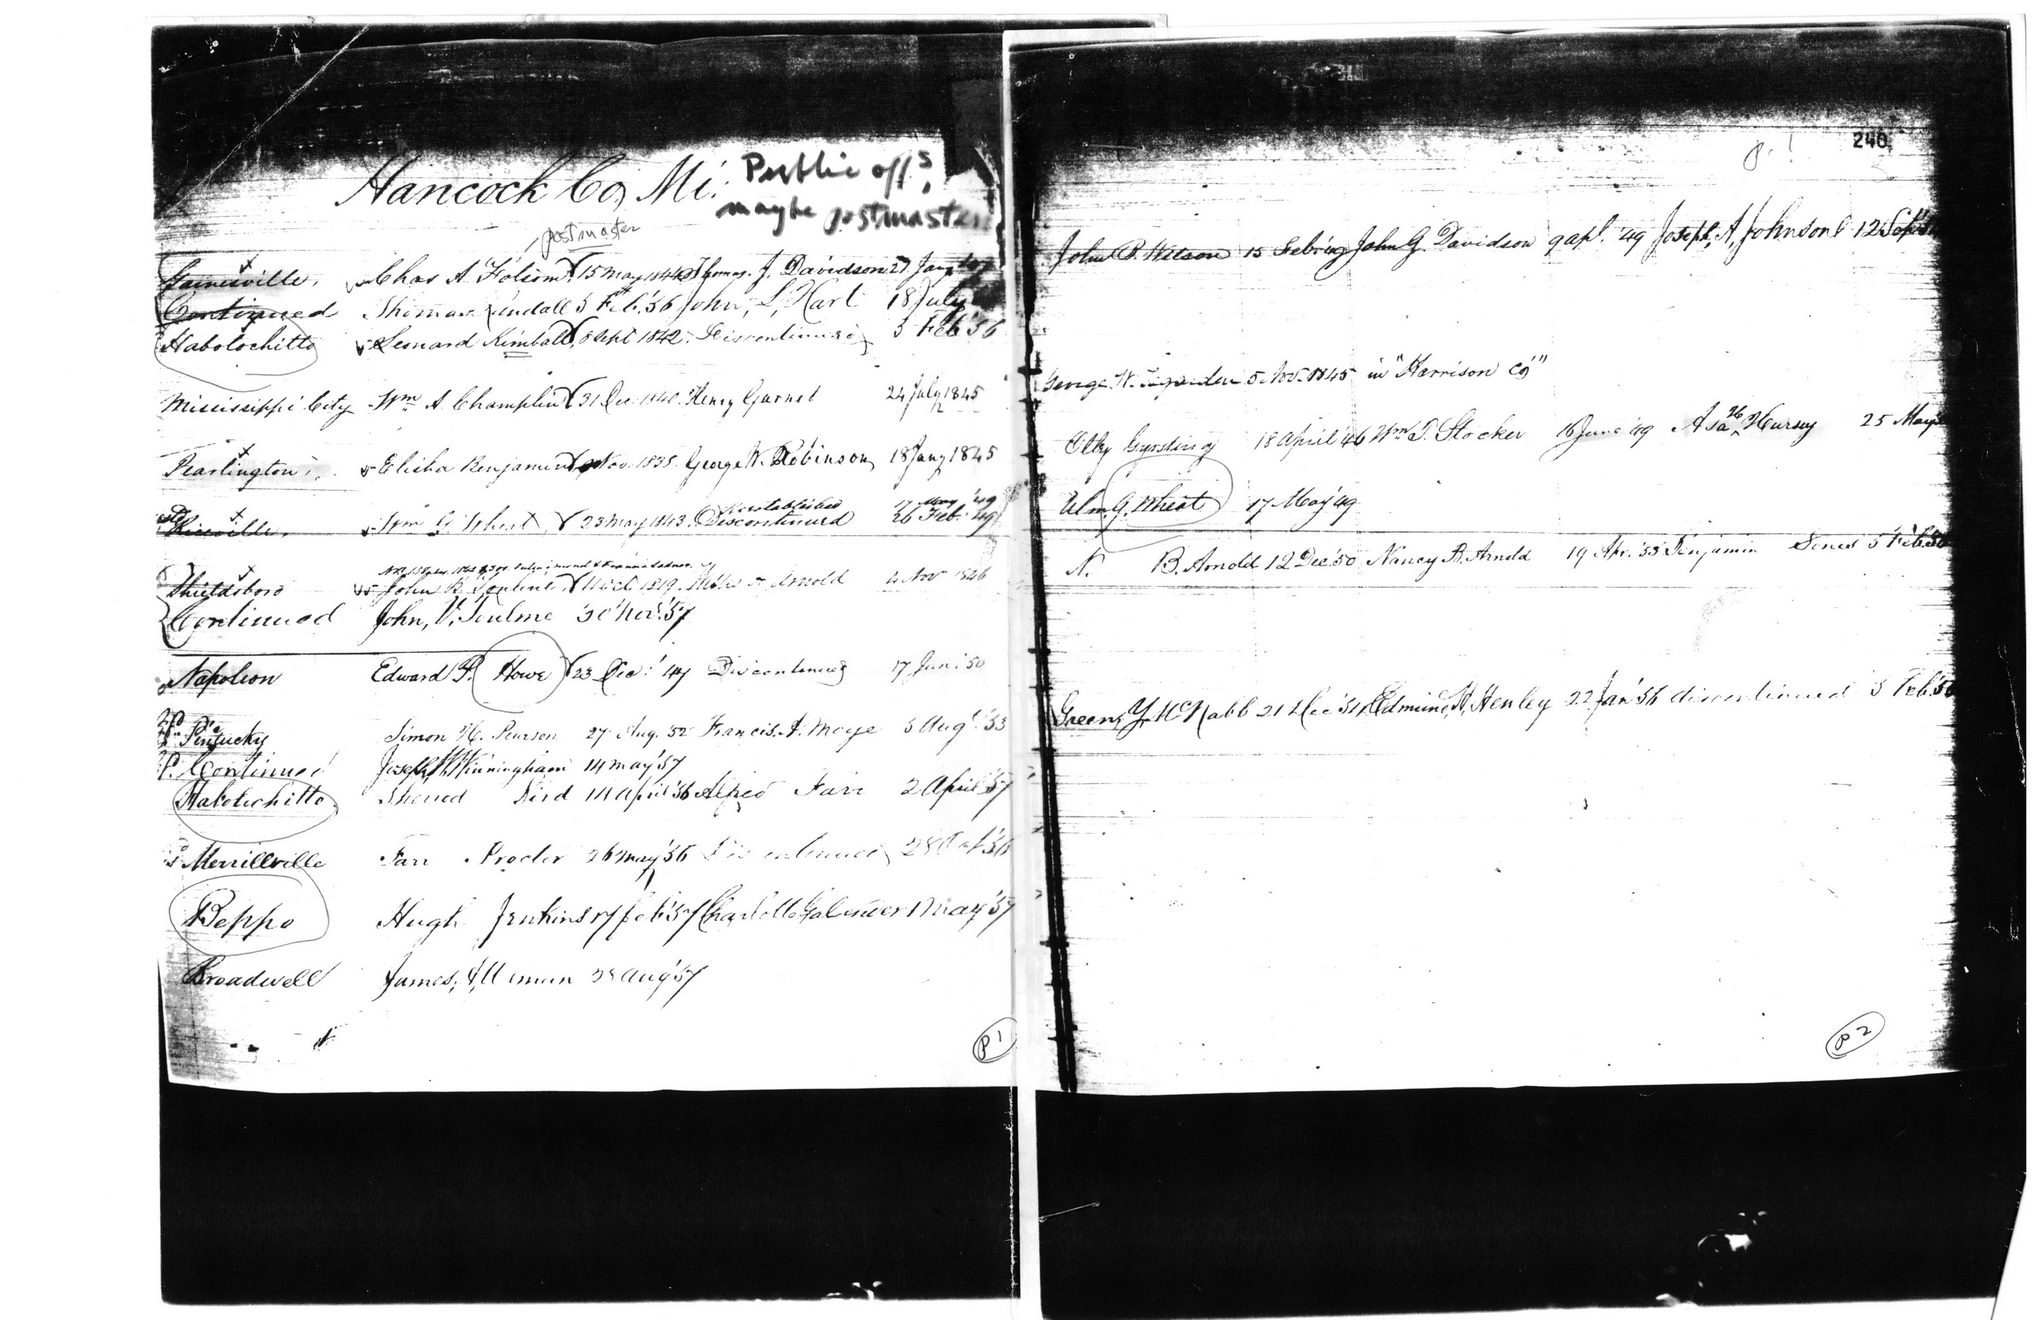 Hancock Co, Mi.
Public offs,
maybe postmaster
postmaster
Gainsville, Chas A Folsom 15 May 1840 Thomas J. Davidson 27 Jany
Continued Thomas Kendall 5 Feb. '56 John, L, Hart 18 July
Habolochitto Leonard Kimball, 8 Sept 1842 Discontinued 5 Feb '56
Mississippi City Wm A. Champlin 31 Dec. 1840 Henry Garnet 24 July 1845
Pearlington, Elisha Benjamin Nov. 1835. George W. Robinson, 18 Jany 1845
Reestablished 17 May '49
Wm G. Wheat, 23 May 1843. Discontinued 26 Feb. '49
Shieldsboro John B. Toulme, 1819. Arnold 4 Nov 1846
Continued John, V, Toulme 30 Nov. '57
Napoleon Edward P. Howe 23 Dec. '47 Discontinued 17 June '50
Simon H. 27 Aug. 52 Francis. A. Moye 5 Augt. '53
Continued Joseph 14 May '57
Habolochitto 14 April '56 Farr 2 April '57
Merrillville Farr Procter 26 May '56 Discontinued 28 '56
Beppo Hugh Jenkins 17 Feb '57 Charlotte 1 May '57
Broadwell James, 28 Aug '57
P 1
240
P. 1
John P. Wilson 15 Feb John G. Davidson 9 Apl. '49 Joseph, A, Johnson 12 Sept
George W. 5 Nov. 1845 in "Harrison Co"
18 April 46 Wm T. Stocker 16 June '49 Asa Hursey 25 May
Wm. G. Wheat 17 May '49
N. B. Arnold 12 Dec '50 Nancy B. Arnold 19 Apr. '53 Benjamin 5 Feb. '56
Green, Y, McNabb 21 Dec '51 Edmund, H, Henley 22 Jan '56 discontinued 5 Feb. '56
P 2